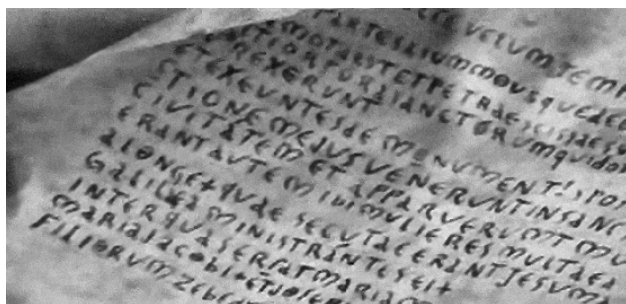 VELUMTEMPL
PARTESASUMMOUSQUEDEO
MOTAESTETPETRAESCISSAESU
SANCTORUMQUIDOR
REXERUNT
ETEXEUNTESDEMONUMENTISPOS
TIONEMEJUSVENERUNTINSANC
CIVITATEMETAPPARUERUNTMU
ERANTAUTEMIBIMULIERESMULTAEA
ALONGE+QUAESECUTAEERANTJESUMA
GALILEAMINISTRANTESEI+
INTERQUASERATMARIAM
MARIAJACOBI+ETJOSEP
FILIORUMZEBE